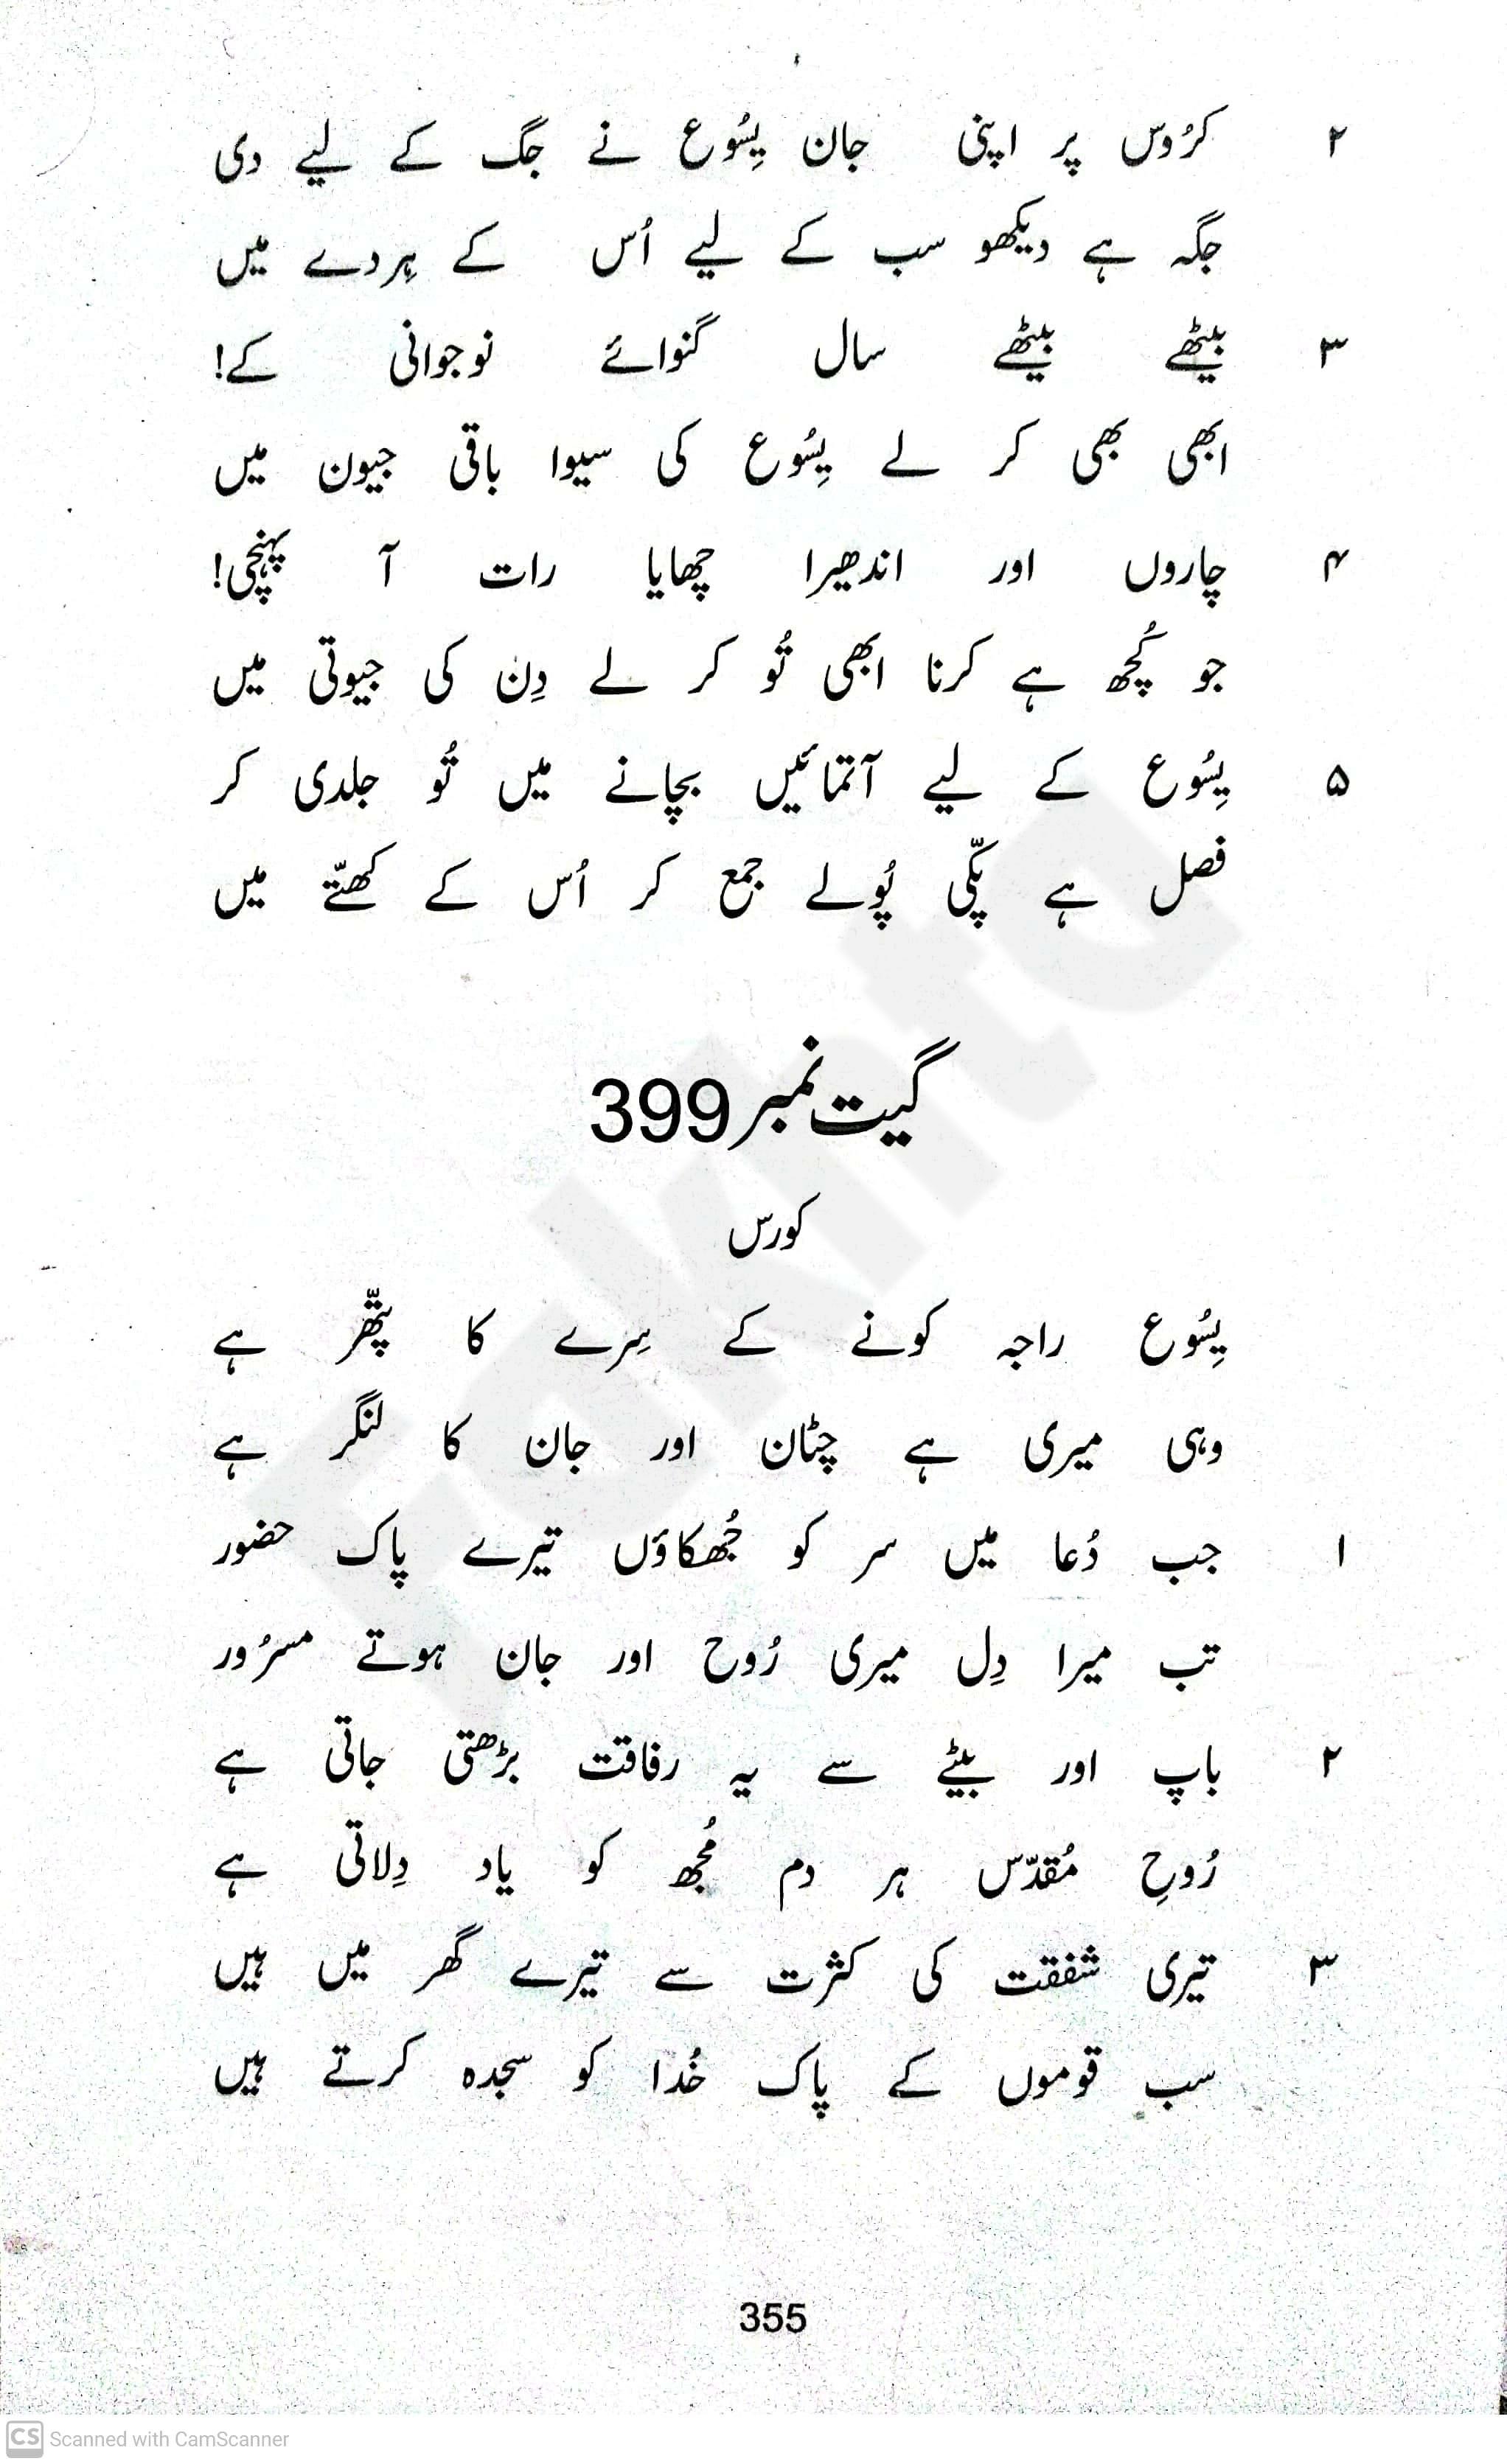 ۲ کرُوس پر اپنی جان یِسُوع نے جگ کے لیے دی
جگہ ہے دیکھو سب کے لیے اُس کے ہِردے میں
۳ بیٹھے بیٹھے سال گنوائے نوجوانی کے!
ابھی بھی کر لے یِسُوع کی سیوا باقی جیون میں
۴ چاروں اور اندھیرا چھایا رات آ پہنچی!
جو کُچھ ہے کرنا ابھی تُو کر لے دِن کی جیوتی میں
۵ یِسُوع کے لیے آتمائیں بچانے میں تُو جلدی کر
فصل ہے پکّی پُولے جمع کر اُس کے کھتّے میں
گیت نمبر 399
کورس
یِسُوع راجہ کونے کے سِرے کا پتھّر ہے
وہی میری ہے چٹان اور جان کا لنگر ہے
۱ جب دُعا میں سر کو جُھکاؤں تیرے پاک حضور
تب میرا دِل میری رُوح اور جان ہوتے مسرُور
۲ باپ اور بیٹے سے یہ رفاقت بڑھتی جاتی ہے
رُوحِ مُقدّس ہر دم مُجھ کو یاد دِلاتی ہے
۳ تیری شفقت کی کثرت سے تیرے گھر میں ہیں
سب قوموں کے پاک خُدا کو سجدہ کرتے ہیں
355
CS Scanned with CamScanner
Fakhta